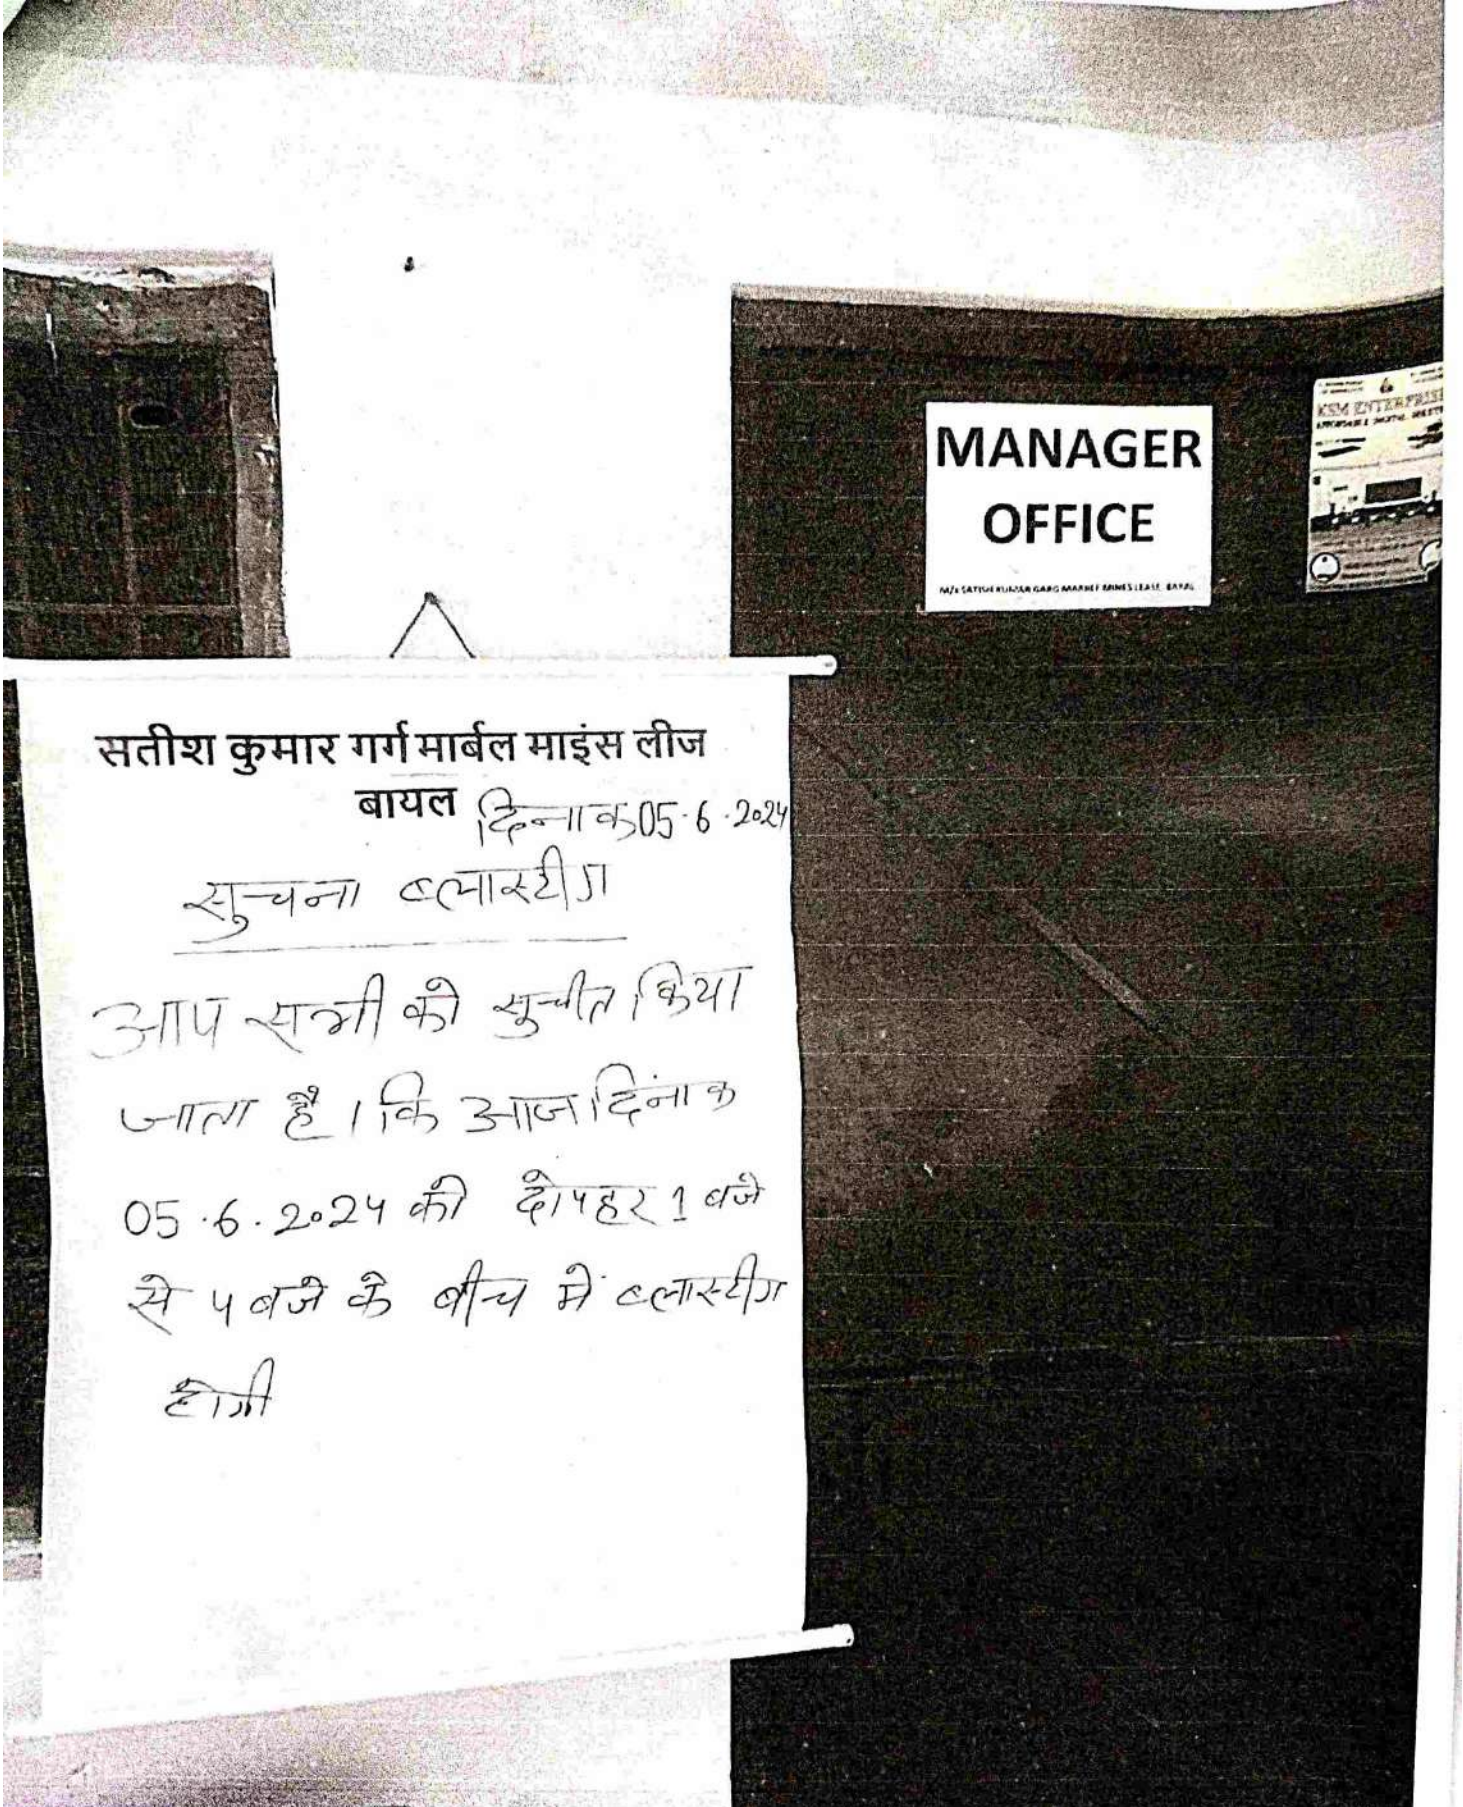 MANAGER
OFFICE
M/s SATISH KUMAR GARG MARBLE MINES LEASE, BAYAL
KSM ENTERPRIS
सतीश कुमार गर्ग मार्बल माइंस लीज
बायल
दिनाक 05.6.2024
सुचना ब्लास्टीग
आप सभी को सुचीत किया
जाता है । कि आज दिंनाक
05.6.2024 को दोपहर 1 बजे
से 4 बजे के बीच में ब्लास्टीग
होगी